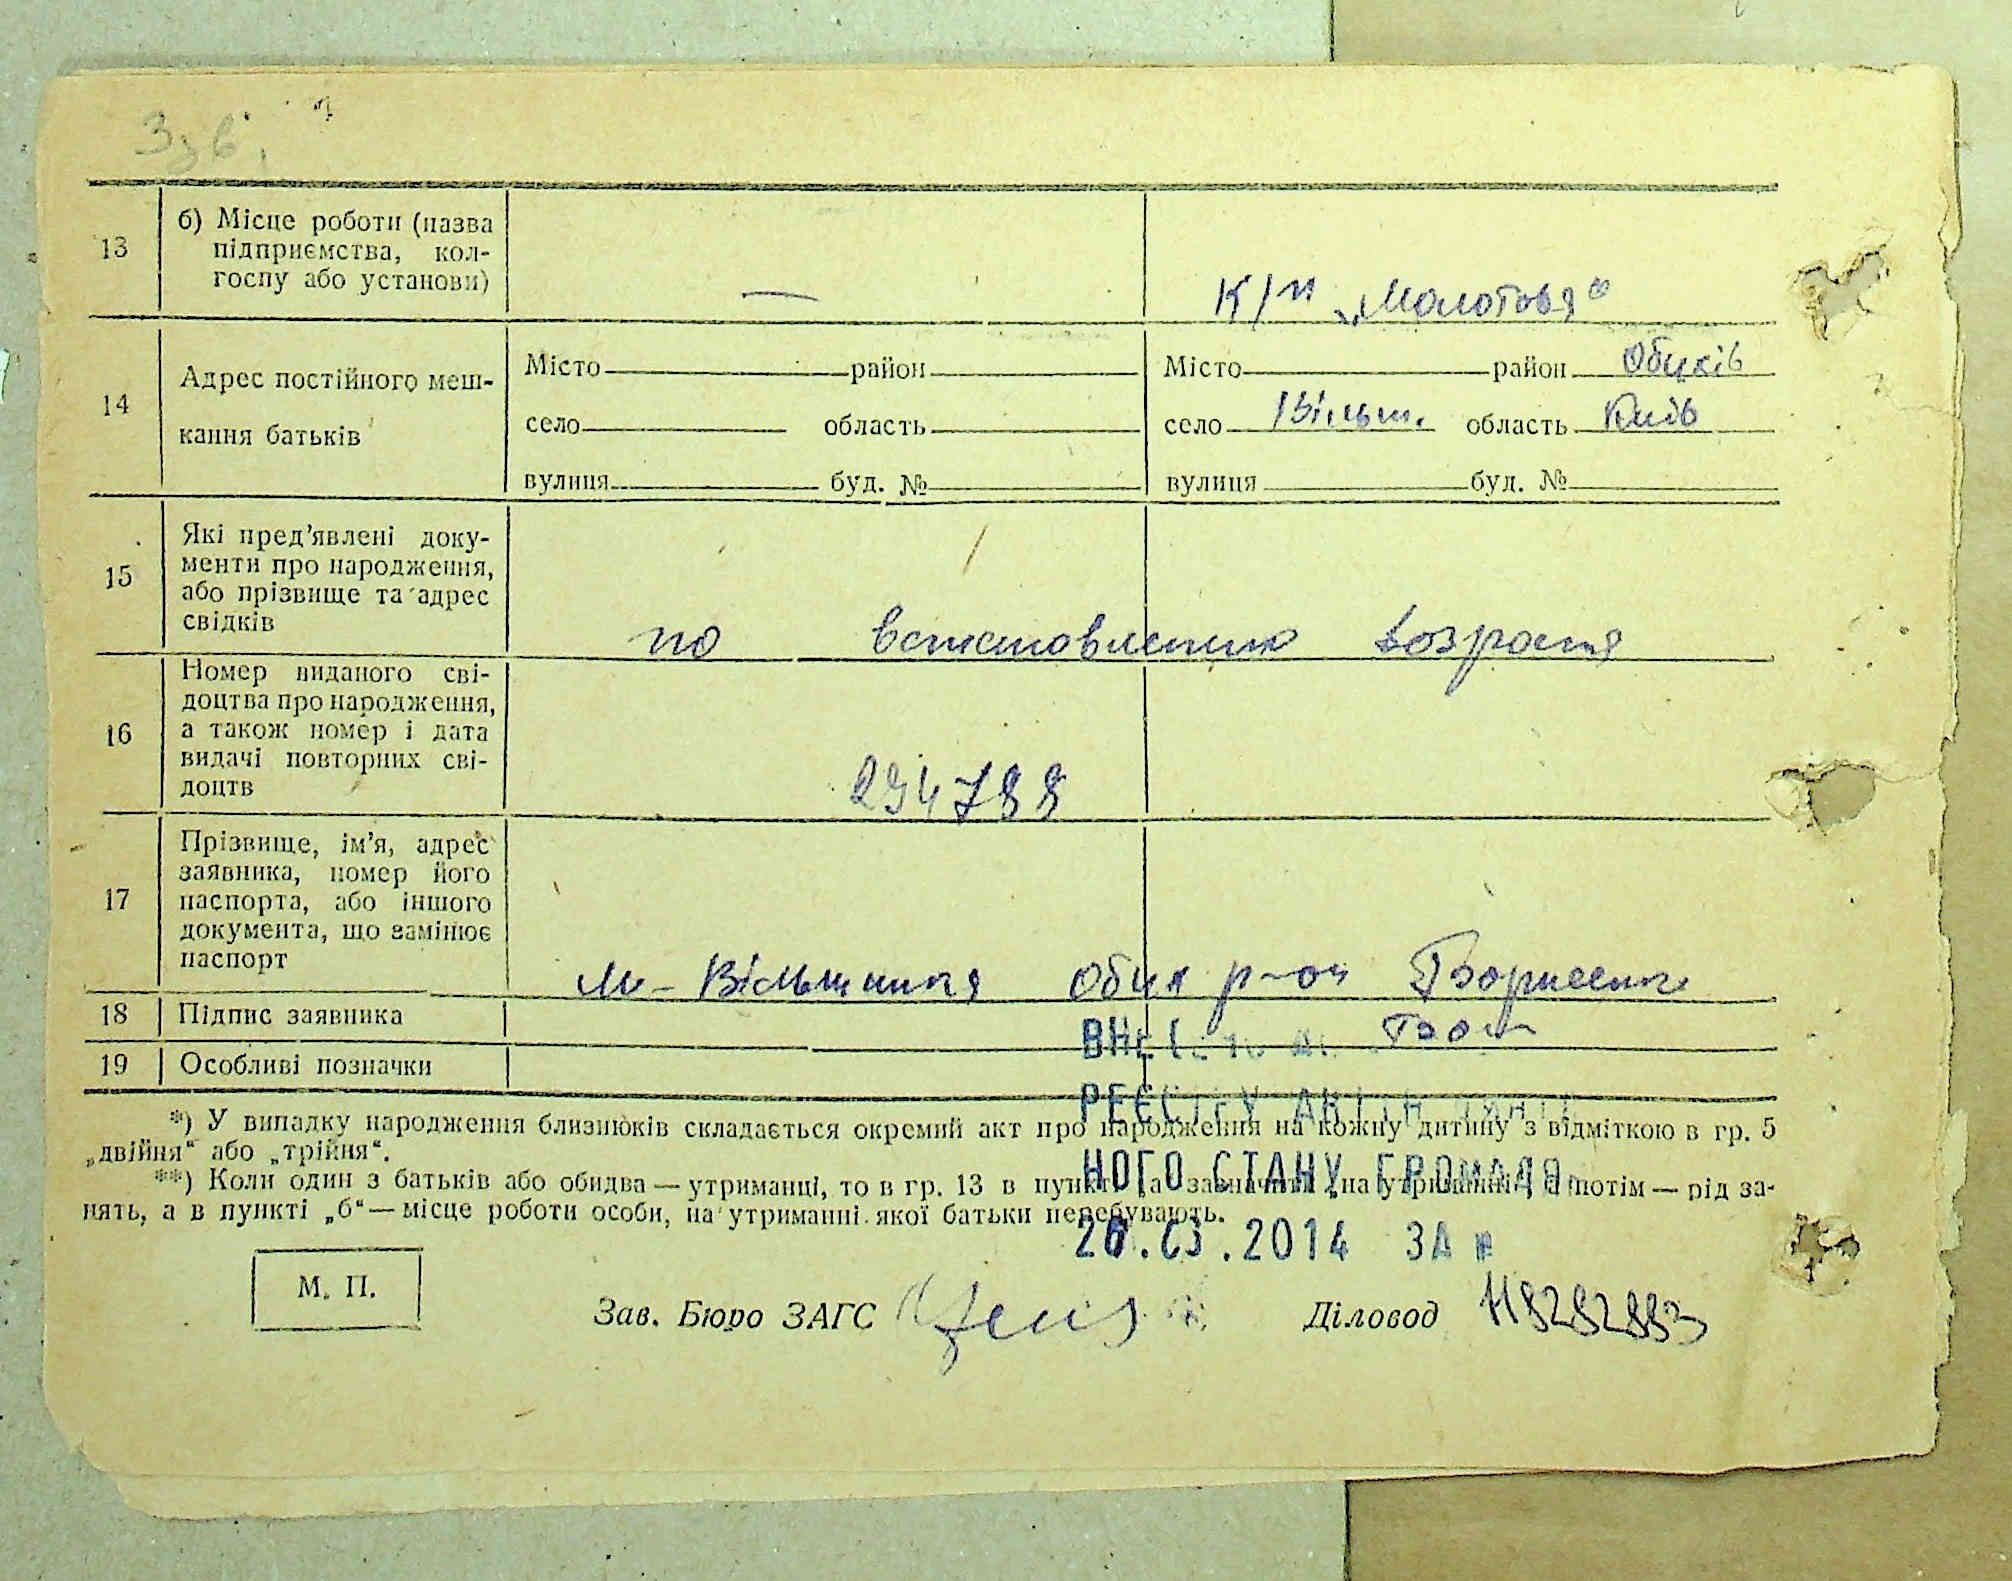 13
б) Місце роботи (назва
підприємства, кол-
госпу або установи)
—
к/г „Молотова"
14
Адрес постійного меш-
кання батьків
Місто район
село область
вулиця буд. №
Місто район Обухів
село Вільш. область Київ
вулиця буд. №
15
Які пред'явлені доку-
менти про народження,
або прізвище та адрес
свідків
по встановленню возраста
16
Номер виданого сві-
доцтва про народження,
а також номер і дата
видачі повторних сві-
доцтв
294788
17
Прізвище, ім'я, адрес
заявника, номер його
паспорта, або іншого
документа, що замінює
паспорт
М-Вільшанка Обух р-он
18 Підпис заявника
19 Особливі позначки
ВНЕСЕНО ДО
РЕЄСТРУ АКТІВ ЦИВІЛЬ
НОГО СТАНУ ГРОМАДЯН
2014 ЗА №
*) У випадку народження близнюків складається окремий акт про народження на кожну дитину з відміткою в гр. 5
„двійня" або „трійня".
**) Коли один з батьків або обидва — утриманці, то в гр. 13 в пункті „а" зазначити „на утриманні", а потім — рід за-
нять, а в пункті „б" — місце роботи особи, на утриманні якої батьки перебувають.
М. П.
Зав. Бюро ЗАГС
Діловод